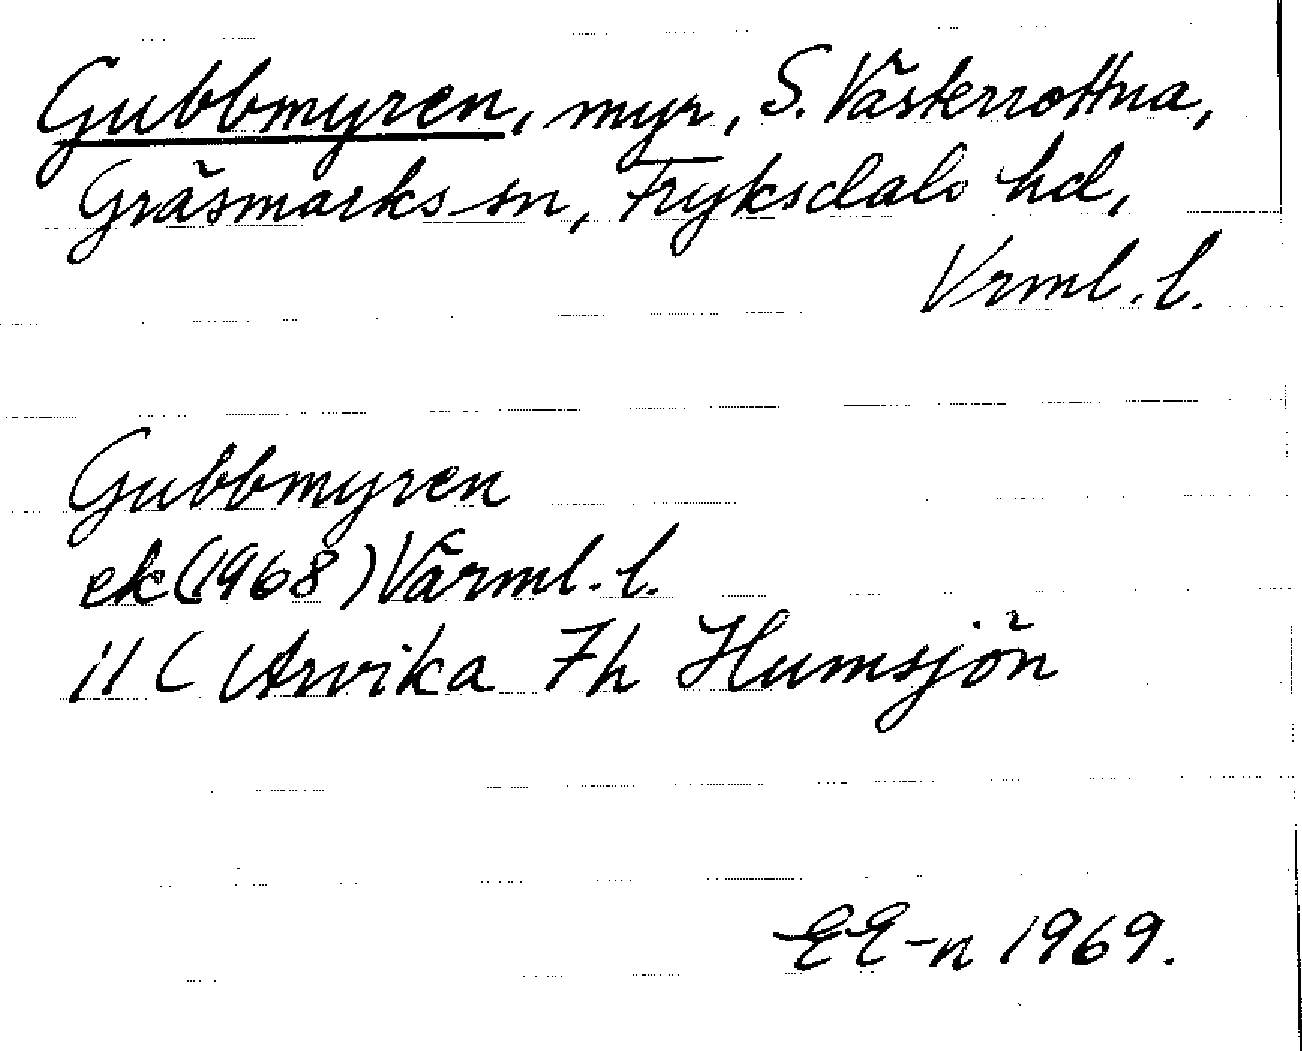 Gubbmyren, myr, S. Västerrottna,
Gräsmarks sn, Fryksdals hd,
Vrml. l.
Gubbmyren
ek (1968) Värml. l.
11 C Arvika 7h Humsjön
EE-n 1969.